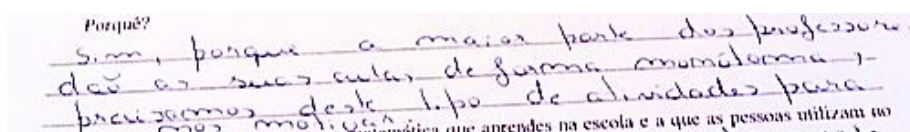 Porquê?
Sim, porque a maior parte dos professores
daõ as suas aulas de forma momótorma,
precisamos deste tipo de atividades para
nos motivar
matemática que aprendes na escola e a que as pessoas utilizam no